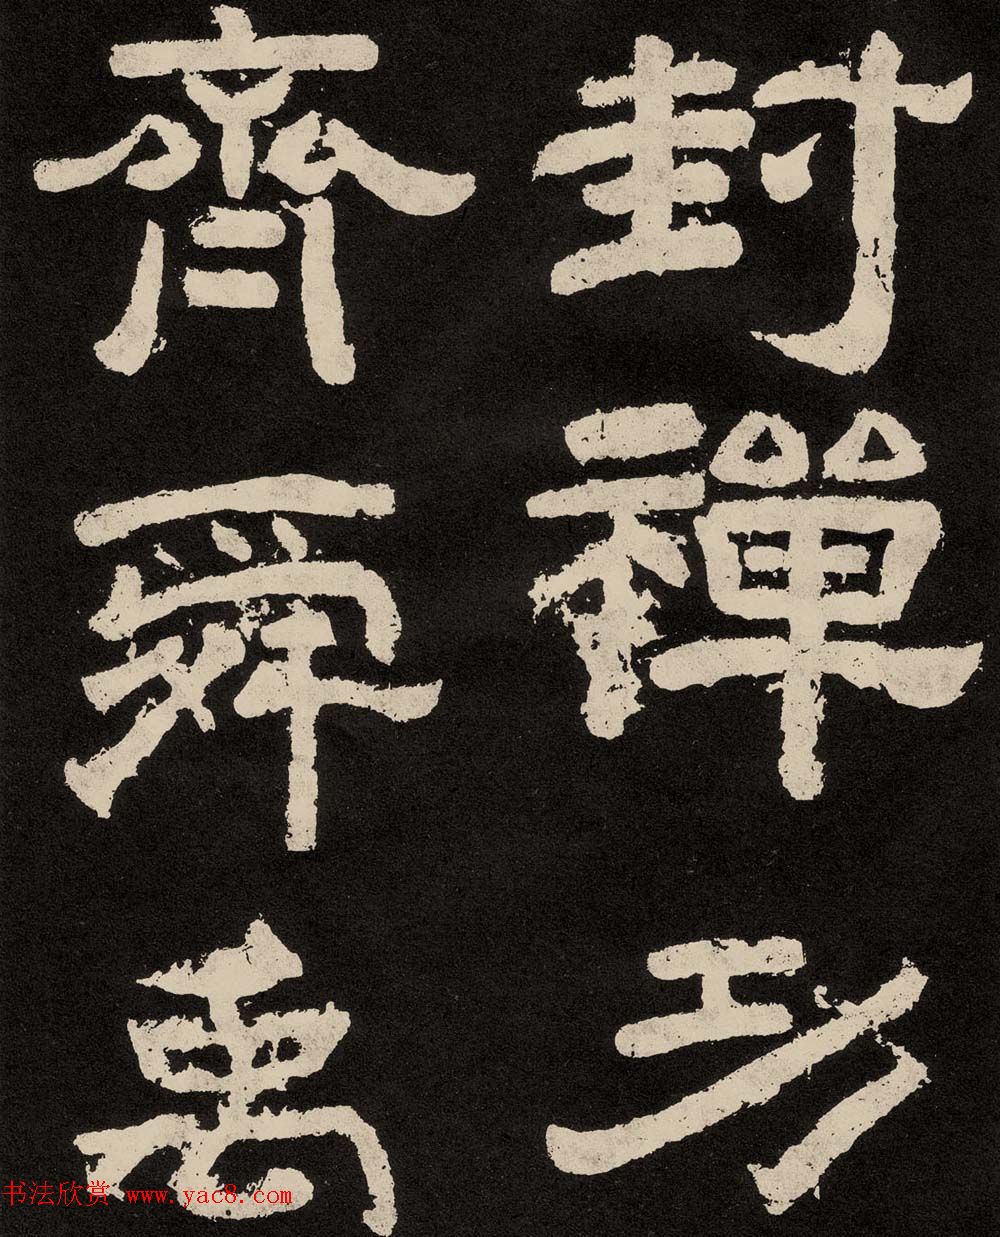 封禪功
齊舜禹
书法欣赏 www.yac8.com